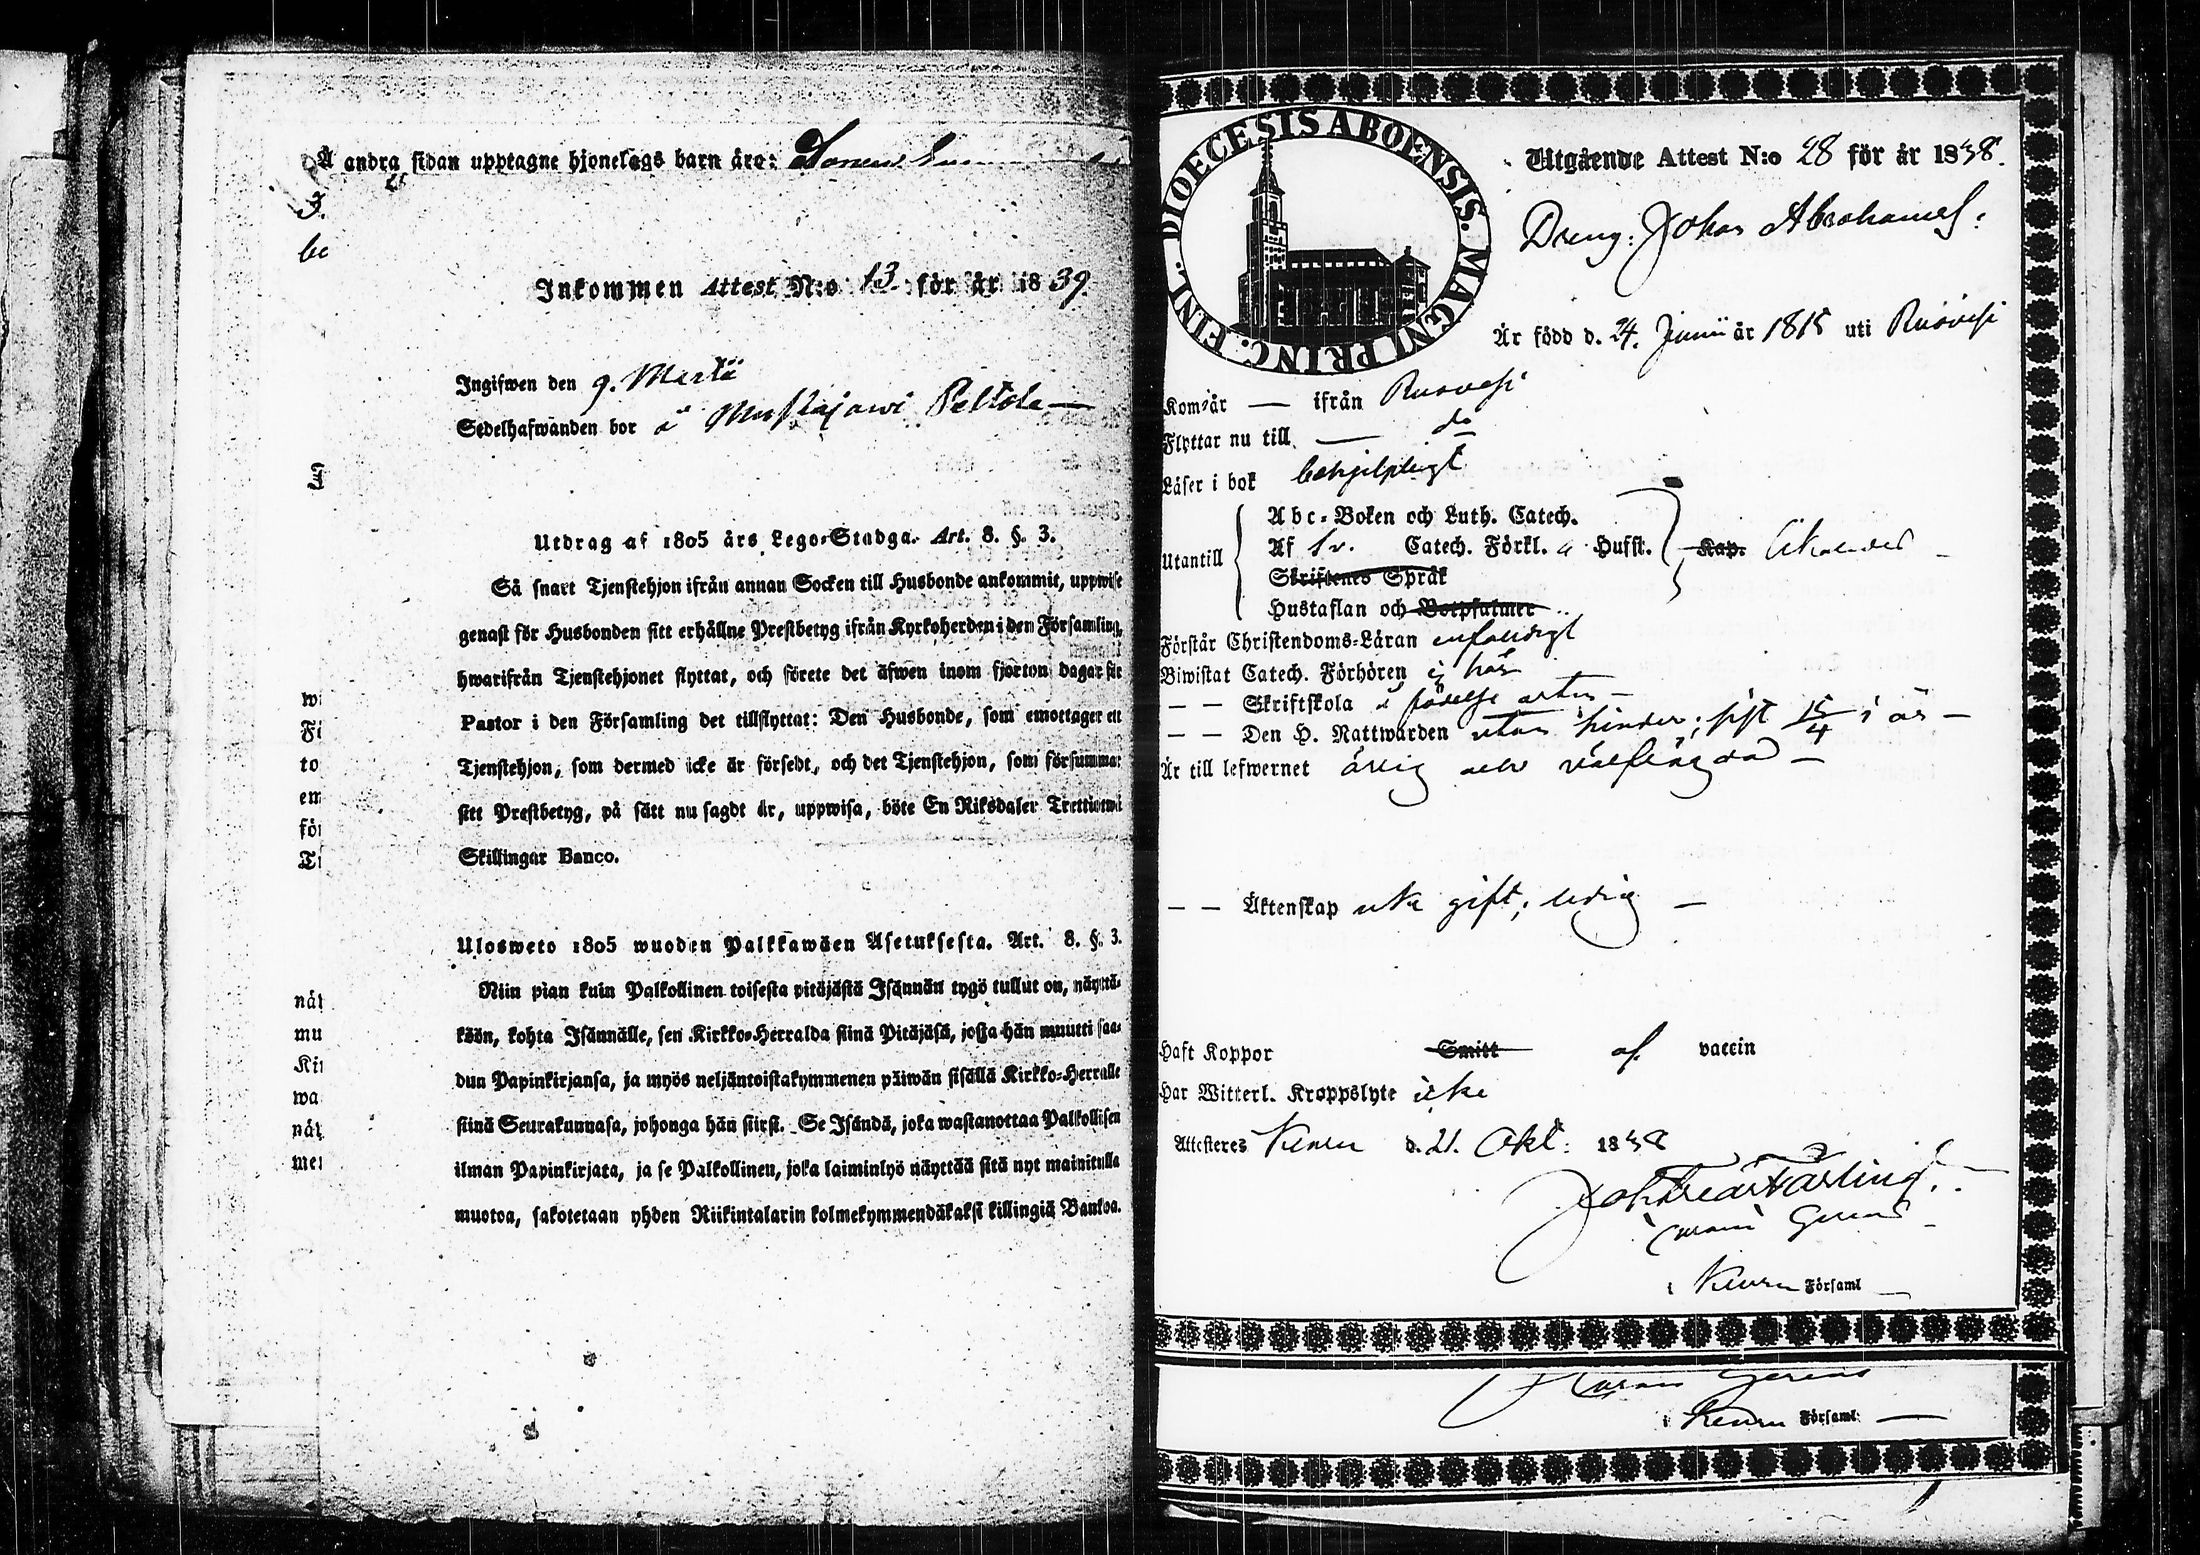 Å andra sidan upptagne hjonelags barn äro:
3.
be
Inkommen Attest N:o 13. för år 1839.
Ingifwen den 9. Martii
Sedelhafwanden bor å Mustajärwi Peltola —
Utdrag af 1805 års Lego-Stadga. Art. 8. §. 3.
Så snart Tjenstehjon ifrån annan Socken till Husbonde ankommit, uppwise
genast för Husbonden sitt erhållne Prestbetyg ifrån Kyrkoherden i den Församling,
hwarifrån Tjenstehjonet flyttat, och förete det äfwen inom fjorton dagar för
Pastor i den Församling det tillflyttat: Den Husbonde, som emottager ett
Tjenstehjon, som dermed icke är försedt, och det Tjenstehjon, som försummar
sitt Prestbetyg, på sätt nu sagdt är, uppwisa, böte En Riksdaler Trettiotwå
Skillingar Banco.
Ulosweto 1805 wuoden Palkkawäen Asetuksesta. Art. 8. §. 3.
Niin pian kuin Palkollinen toisesta pitäjästä Isännän tygö tullut on, näyttä-
köön, kohta Isännälle, sen Kirkko-Herralda siinä Pitäjäsä, josta hän muutti saa-
dun Papinkirjansa, ja myös neljäntoistakymmenen päiwän sisällä Kirkko-Herralle
siinä Seurakunnasa, johonga hän siirsi. Se Isändä, joka wastanottaa Palkollisen
ilman Papinkirjata, ja se Palkollinen, joka laiminlyö näyttää sitä nyt mainitulla
muotoa, sakotetaan yhden Riikintalarin kolmekymmendäkaksi killingiä Bankoa.
wi
Fi
to
em
för
Ti
näl
mu
Kir
wa
näl
mei
DIOECESIS ABOENSIS. MAGNI PRINC. FINL.
Utgående Attest N:o 28 för år 1838.
Dreng: Johan Abrahamss:
Är född d. 24. Junii år 1815 uti Ruovesi
Kom år — ifrån Ruovesi
Flyttar nu till — do
Läser i bok behjelpligt
Utantill
Abc-Boken och Luth. Catech.
Af Sv. Catech. Förkl. Husst. Kap.
Skriftenes Språk
Hustaflan och Botpsalmer
Förstår Christendoms-Läran enfaldigt
Biwistat Catech. Förhören ej här
— — Skriftskola å födelse orten —
— — Den H. Nattwarden utan hinder; sist 15/4 i år —
Är till lefwernet ärlig och välfrägdad —
— — Äktenskap icke gift; ledig —
Haft Koppor Smitt af vaccin
Har Witterl. Kroppslyte icke
Attesteres Keuru d. 21. Okt: 1838
i Keuru Församl —
i Keuru Församl: —